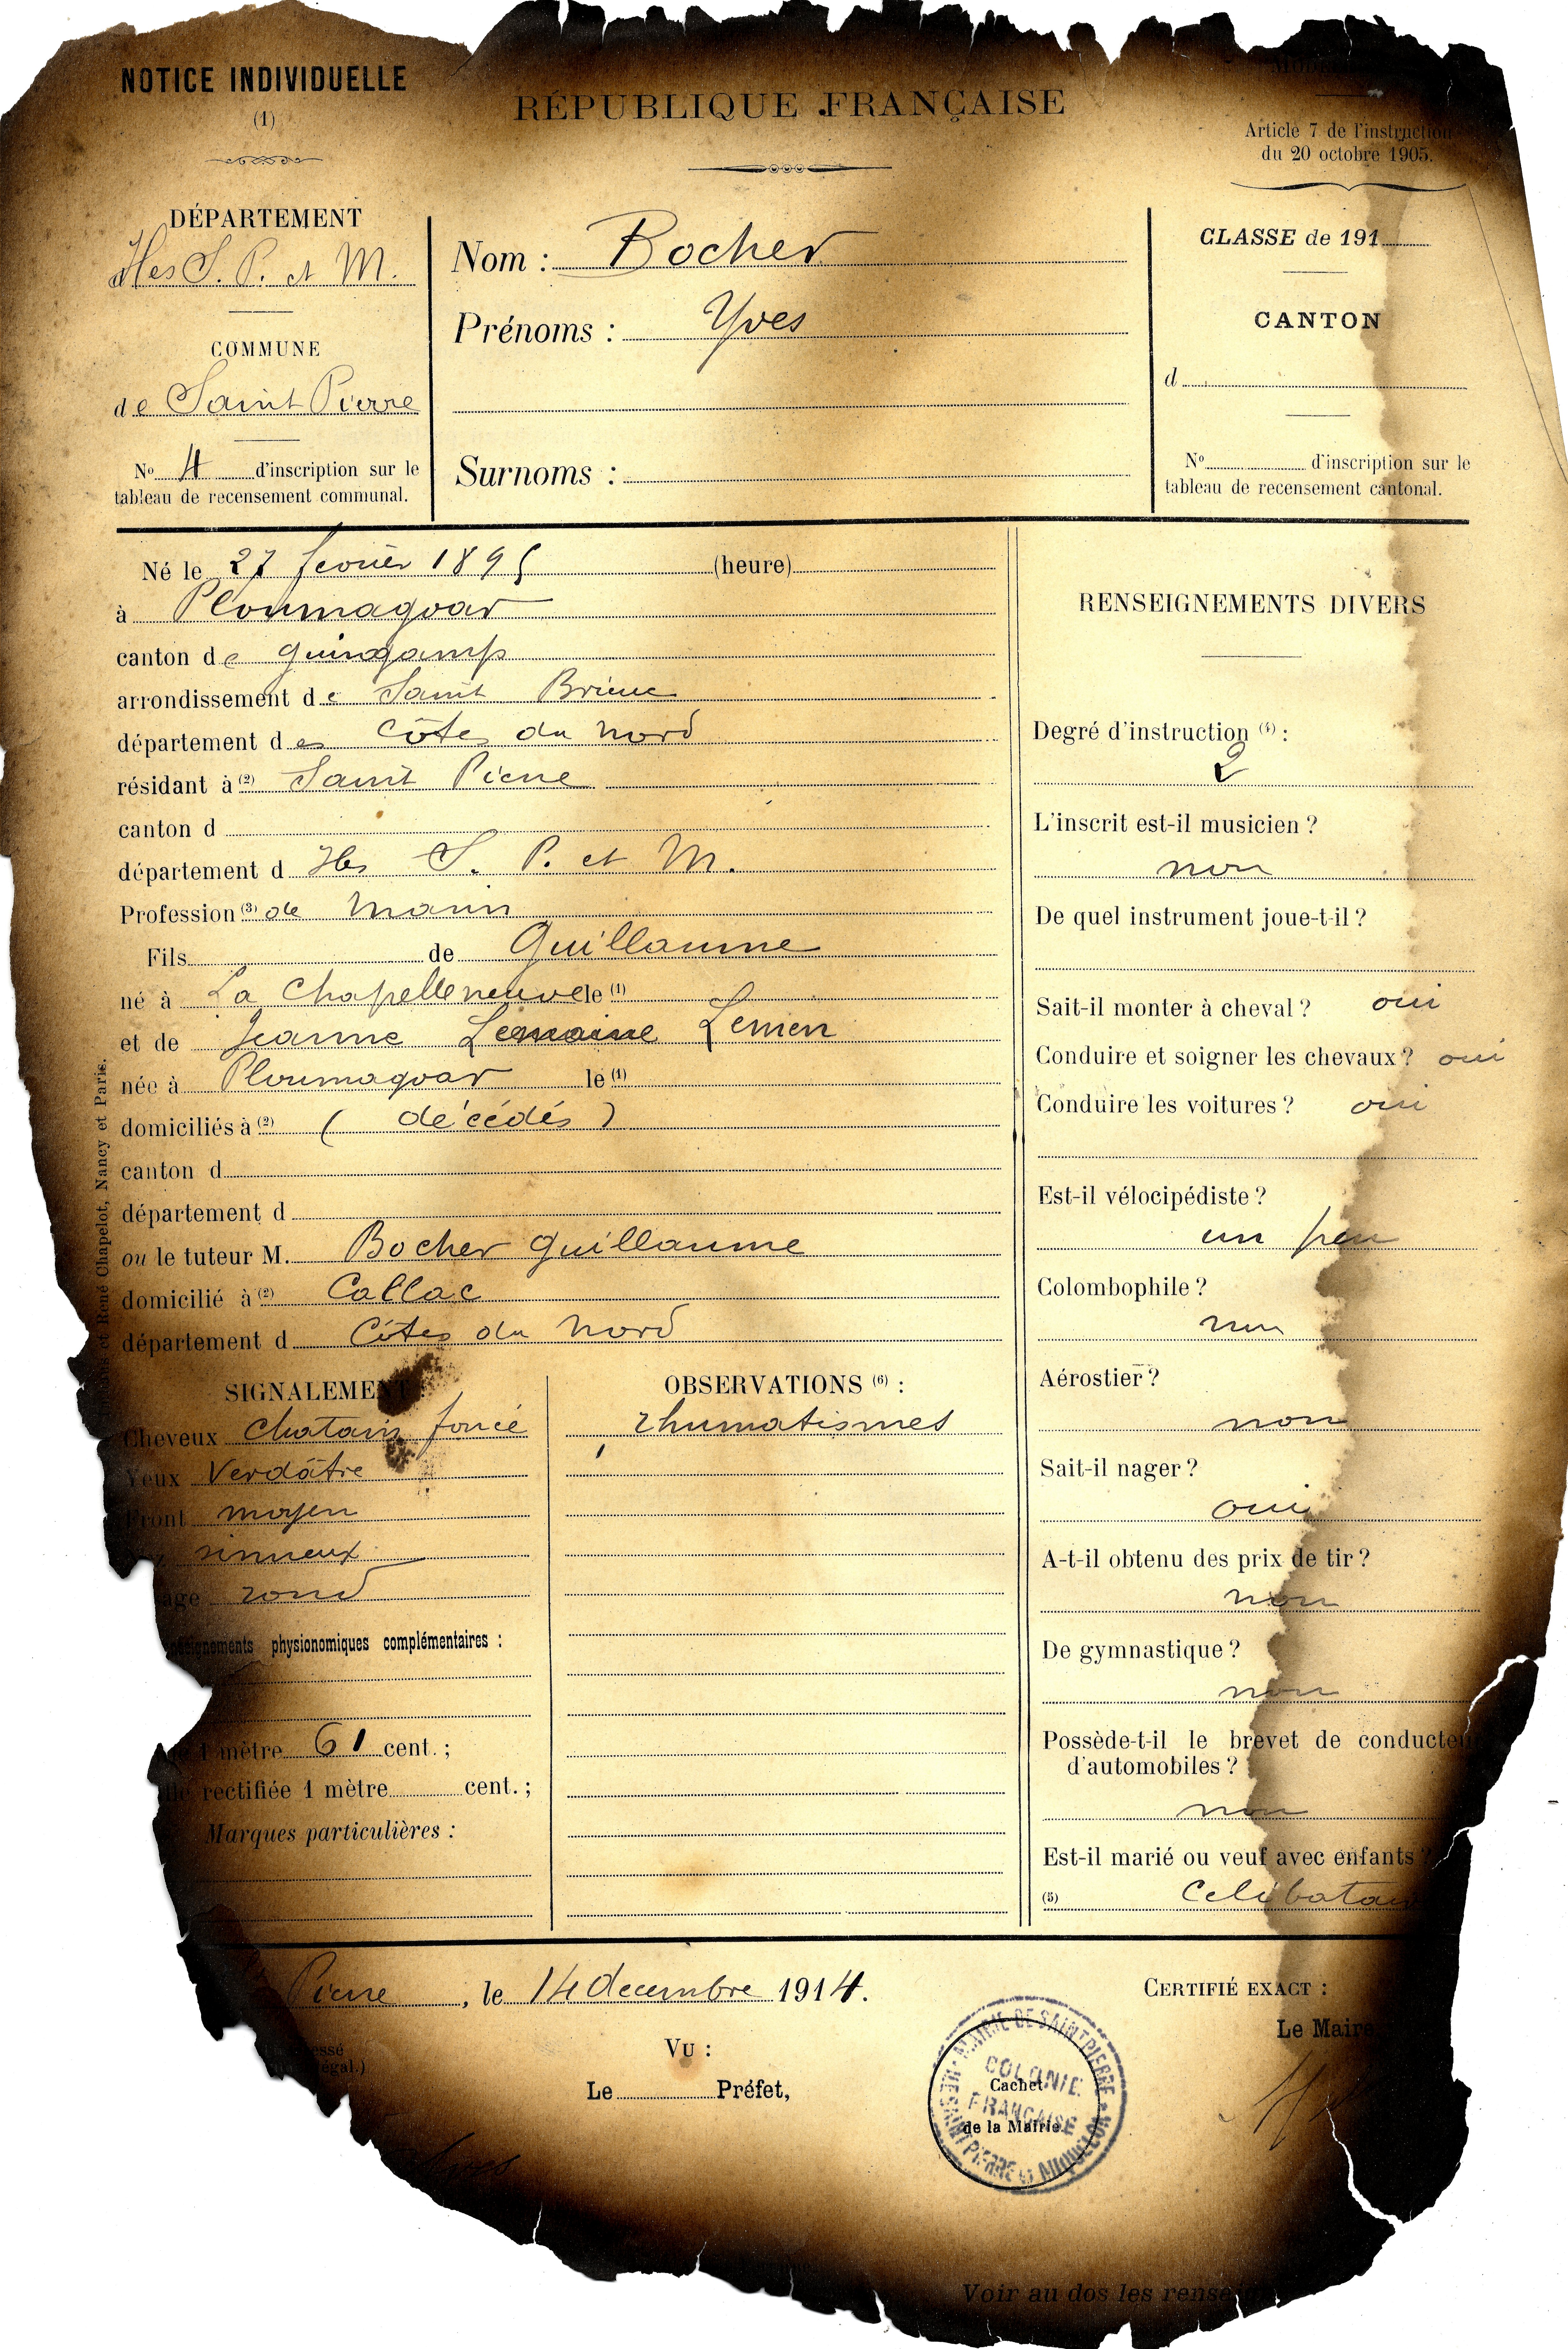 NOTICE INDIVIDUELLE
(1)
RÉPUBLIQUE FRANÇAISE
Article 7 de l'instruction
du 20 octobre 1905.
DÉPARTEMENT
Iles S. P. et M.
COMMUNE
de Saint Pierre
No 4 d'inscription sur le
tableau de recensement communal.
Nom : Bocher
Prénoms : Yves
Surnoms :
CLASSE de 191
CANTON
d
No d'inscription sur le
tableau de recensement cantonal.
Né le 27 fevrier 1895 (heure)
à Ploumagoar
canton de Guingamp
arrondissement de Saint Brieuc
département des Côtes du Nord
résidant à (2) Saint Pierre
canton d
département d Iles S. P. et M.
Profession (3) de Marin
Fils de Guillaume
né à La Chapelleneuve le (1)
et de Jeanne Lemaine Lemen
née à Ploumagoar le (1)
domiciliés à (2) ( décédés )
canton d
département d
ou le tuteur M. Bocher Guillaume
domicilié à (2) Callac
département d Côtes du Nord
et René Chapelot, Nancy et Paris.
SIGNALEMENT :
Cheveux Chatain foncé
Yeux Verdâtre
Front moyen
sinueux
rond
physionomiques complémentaires :
1 mètre 61 cent. ;
rectifiée 1 mètre cent. ;
Marques particulières :
OBSERVATIONS (6) :
rhumatismes
RENSEIGNEMENTS DIVERS
Degré d'instruction (4) :
2
L'inscrit est-il musicien ?
non
De quel instrument joue-t-il ?
Sait-il monter à cheval ? oui
Conduire et soigner les chevaux ? oui
Conduire les voitures ? oui
Est-il vélocipédiste ?
un peu
Colombophile ?
non
Aérostier ?
non
Sait-il nager ?
oui
A-t-il obtenu des prix de tir ?
non
De gymnastique ?
non
Possède-t-il le brevet de conducteur
d'automobiles ?
non
Est-il marié ou veuf avec enfants ?
(5) Celibatair
Pierre, le 14 decembre 1914.
VU :
Le Préfet,
CERTIFIÉ EXACT :
Le Maire
MAIRIE DE SAINT PIERRE
COLONIE
FRANÇAISE
ILES SAINT PIERRE et MIQUELON
Cachet
de la Mairie.
Voir au dos les